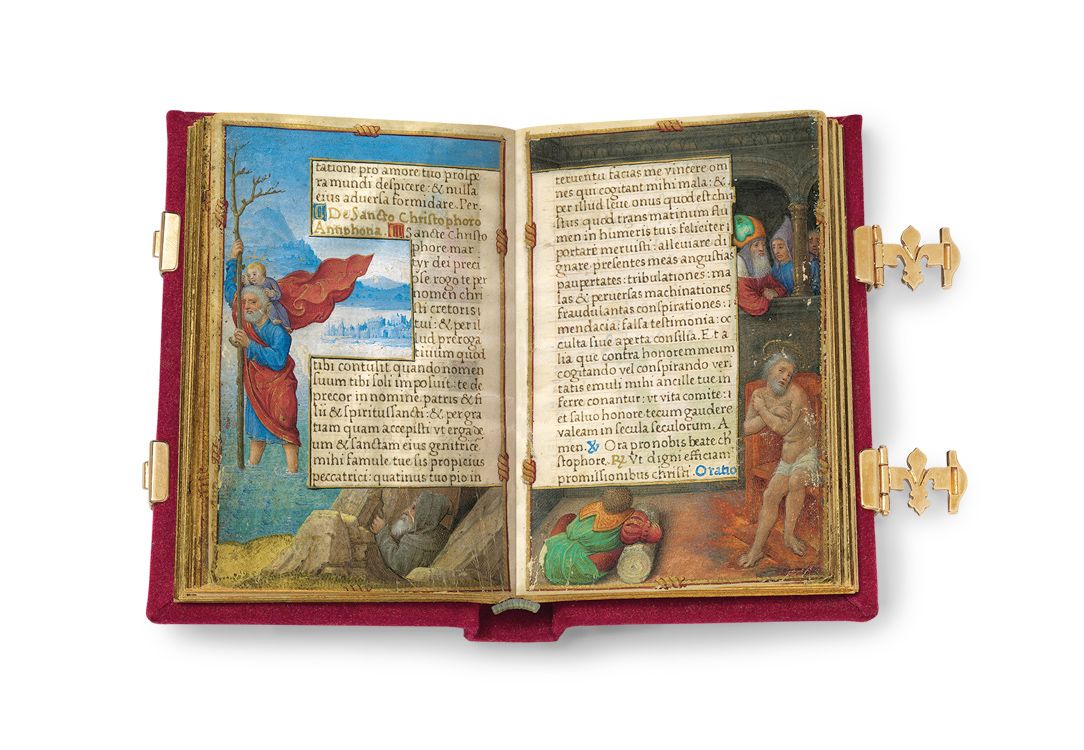 tatione pro amore tuo prospe
ra mundi despicere: & nulla
eius adversa formidare. Per.
De Sancto Christophoro
Antiphona. Sancte Christo
phore mar
tyr dei preci
ose rogo te per
nomen chri
sti cretoris t
tui: & per il
lud preroga
tiuum quod
tibi contulit quando nomen
suum tibi soli imposuit: te de
precor in nomine patris & fi
lii & spiritus sancti: & per gra
tiam quam accepisti vt erga de
um & sanctam eius genitricē.
mihi famule tue sis propicius
peccatrici: quatinus tuo pio in
teruentu facias me vincere om
nes qui cogitant mihi mala: &
per illud leue onus quod est chri
stus: quod trans marinum flu
men in humeris tuis feliciter
portare meruisti: alleuiare di
gnare presentes meas angustias
paupertates: tribulationes: ma
las & peruersas machinationes
fraudulantas conspirationes:
mendacia: falsa testimonia: oc
culta siue aperta consilia. Et a
lia que contra honorem meum
cogitando vel conspirando veri
tatis emuli mihi ancille tue in
ferre conantur: vt vita comite:
et saluo honore tecum gaudere
valeam in secula seculorum. A
men. Ora pro nobis beate ch
stophore. Vt digni efficiam
promissionibus christi. Oratio